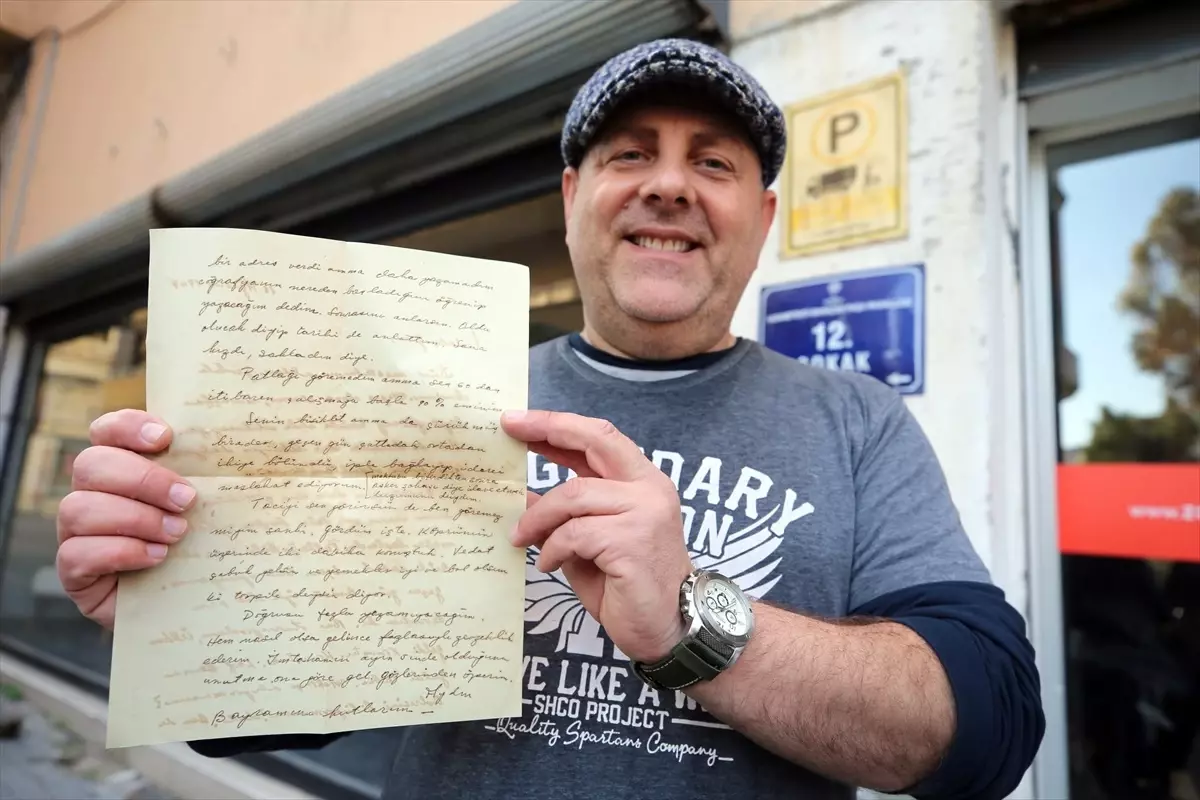 bir adres verdi amma daha yazamadım
nereden başladığını öğrenip
yazacağım dedim. Sonrasını anlarsın. Oldu
olacak deyip tarihi de anlattım sana
kızdı, sakladın diye.
Patlağı göremedim amma sen 20 dan
itibaren çalışmağa başla 90%
Senin bisiklet amma da çürük müş
birader, geçen gün çatladak ortadan
ikiye bölündü iple bağlayıp idarei
maslahat ediyorum.
Taciyi sen görürsün de ben göremez
miyim sanki. Gördüm işte. Köprünün
üzerinde iki dakika konuştuk. Vedat
çabuk gelsin ve yemekler iyi ve bol olsun
ki torpile değsin diyor.
Doğrusu fazla yazamıyacağım.
Hem nasıl olsa gelince fazlasıyle gevezelik
ederiz. İmtahanın ayın 5inde olduğunu
unutma, ona göre gel, gözlerinden öperim.
Aydın
Bayramını kutlarım
P
12.
SOKAK
LEGENDARY
LIVE LIKE A
SHCO PROJECT
Quality Spartans Company
www.